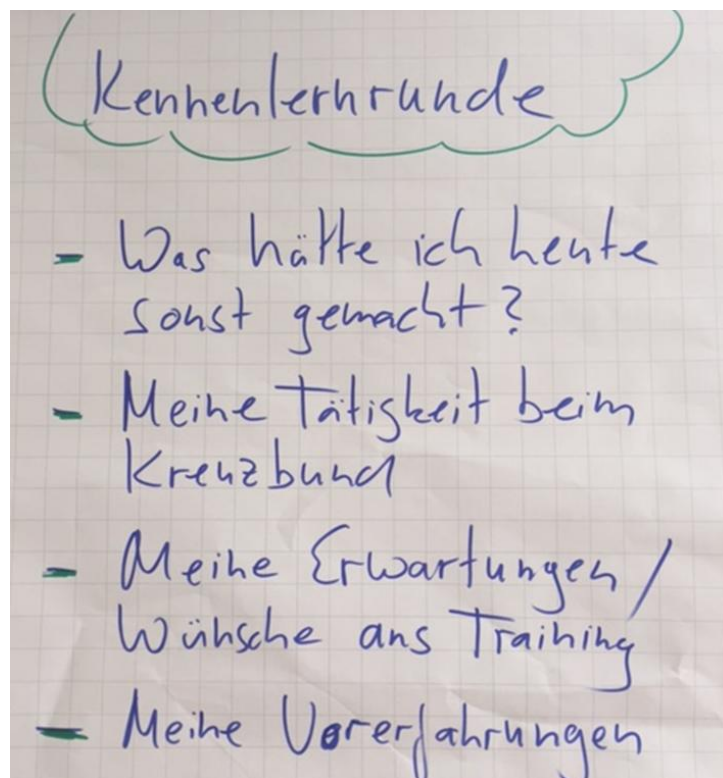 Kennenlernrunde
- Was hätte ich heute
sonst gemacht?
- Meine Tätigkeit beim
Kreuzbund
- Meine Erwartungen /
Wünsche ans Training
- Meine Vorerfahrungen